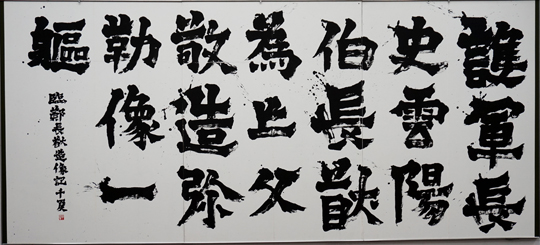 護軍長
史雲陽
伯長猷
為亡父
敬造弥
勒像一
軀
臨鄭長猷造像記 千夏